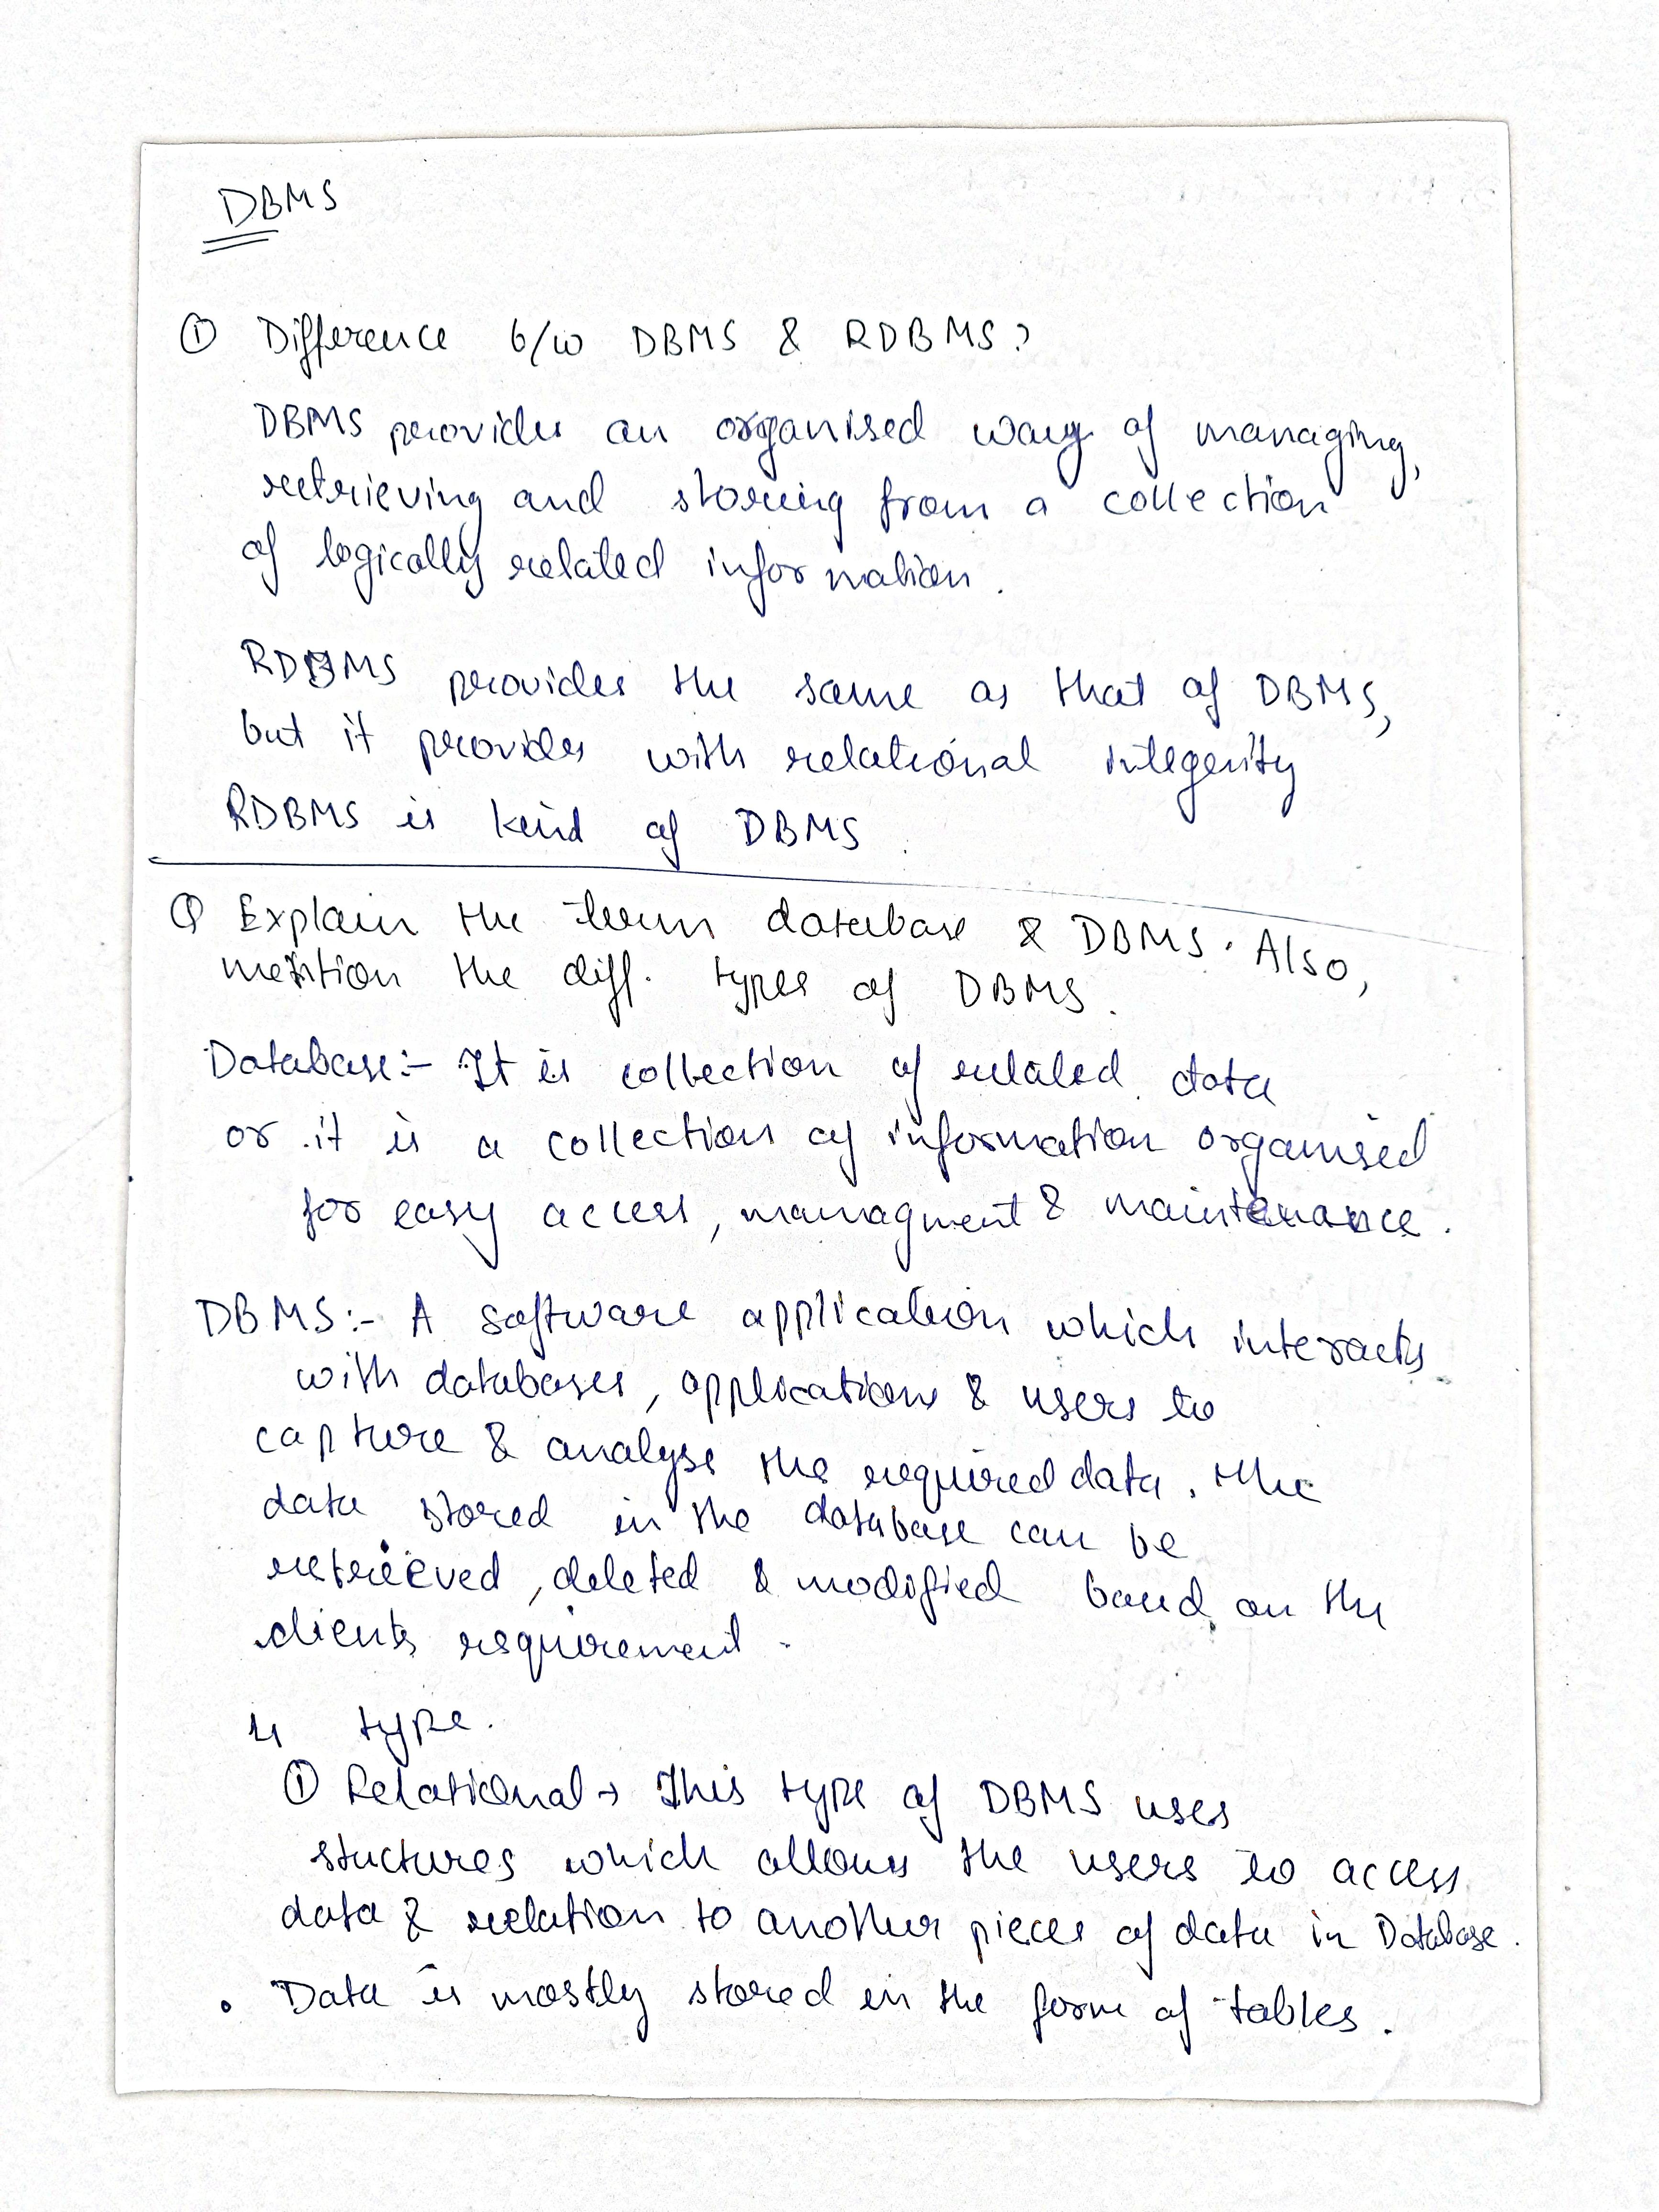 DBMS
① Difference b/w DBMS & RDBMS?
DBMS provides an organised way of managing,
retrieving and storing from a collection
of logically related information.
RDBMS provides the same as that of DBMS,
but it provides with relational integerity
RDBMS is kind of DBMS.
Q Explain the term database & DBMS. Also,
mention the diff. types of DBMS.
Database:- It is collection of related data
or it is a collection of information organised
for easy access, managment & maintenance.
DBMS:- A software application which interacts
with databases, applications & users to
capture & analyse the required data. The
data stored in the database can be
retrieved, deleted & modified based on the
clients requirement.
4 type.
① Relational → This type of DBMS uses
stuctures which allows the users to access
data & relation to another pieces of data in Database.
• Data is mostly stored in the form of tables.